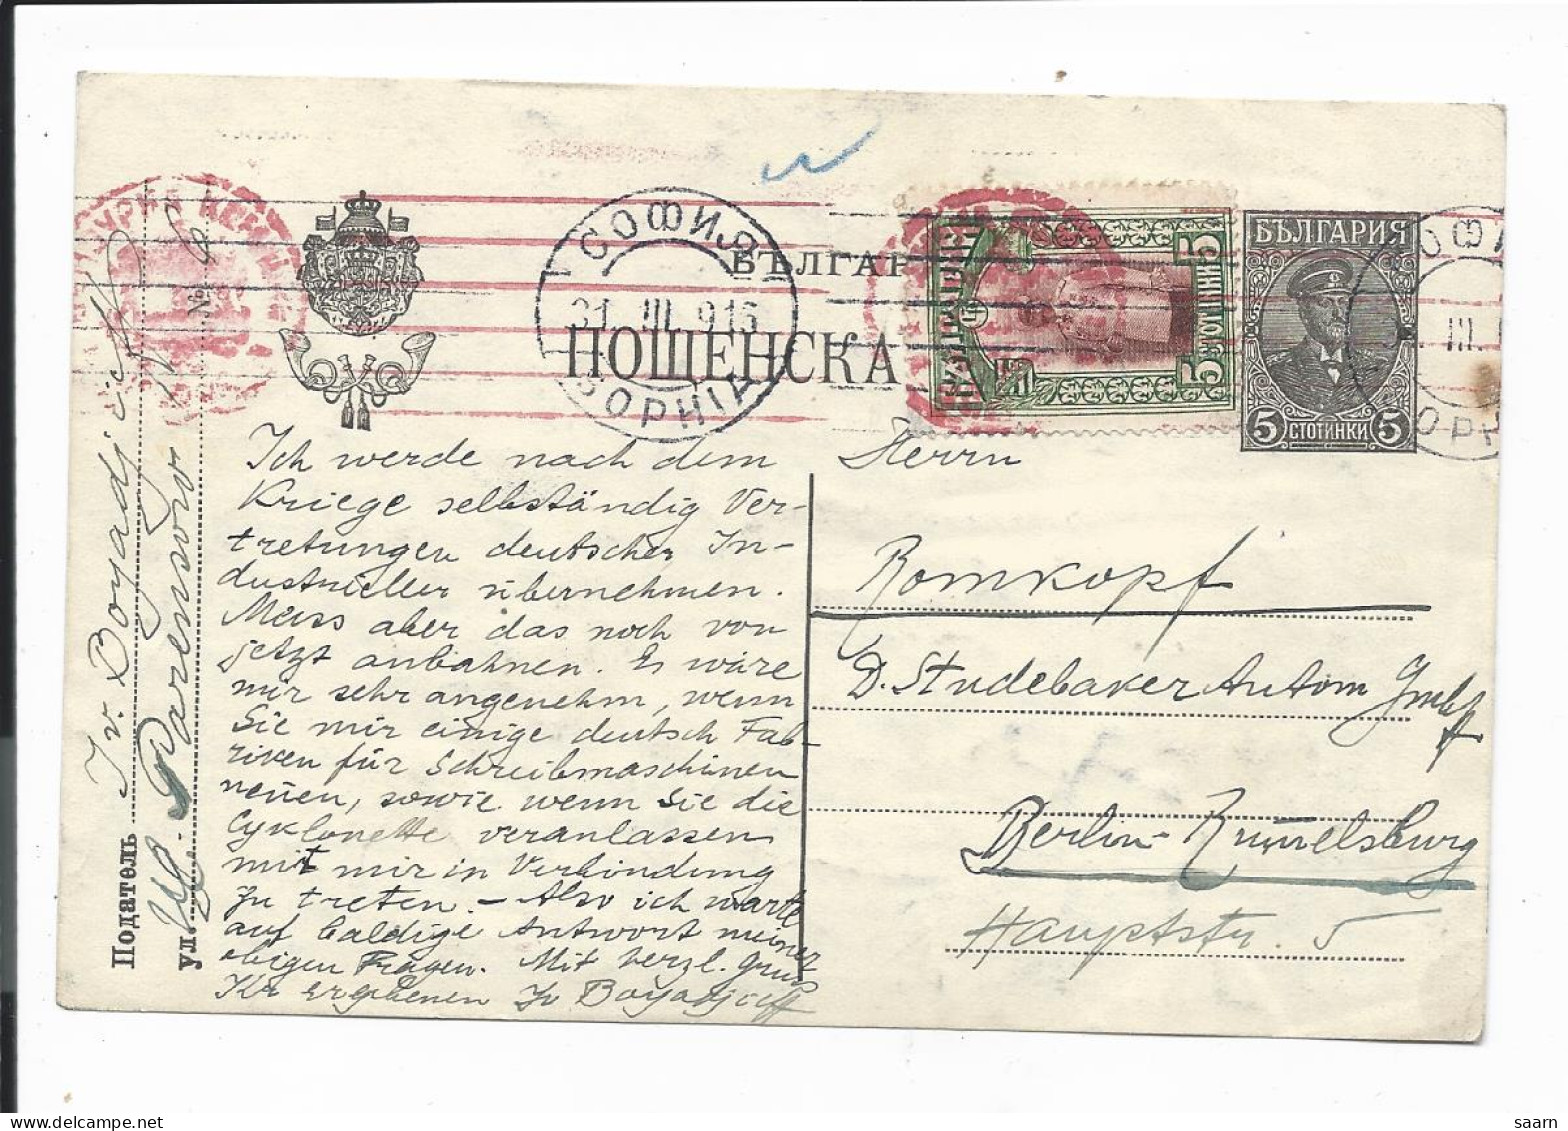 БЪЛГАР
ПОЩЕНСКА
СОФИЯ
31.III.915
SOPHIA
5 СТОТИНКИ 5
БЪЛГАРИЯ
5 СТОТИНКИ 5
III.
Податель Iv. Boyadjieff
ул. Паренсовъ № 6
Ich werde nach dem
Kriege selbständig Ver-
tretungen deutscher In-
dustrieller übernehmen.
Muss aber das noch von
jetzt anbahnen. Es wäre
mir sehr angenehm, wenn
Sie mir einige deutsch Fab-
riken für Schreibmaschinen
nennen, sowie wenn Sie die
Cyklonette veranlassen
mit mir in Verbindung
zu treten. – Also ich warte
auf baldige Antwort meiner
obigen Fragen. Mit herzl. Gruss
Ihr Ergebenen Iv Boyadjieff
Herrn
Romkopf
D. Studebaker Autom Gmbh
Berlin-Rummelsburg
Hauptstr. 5
saarn